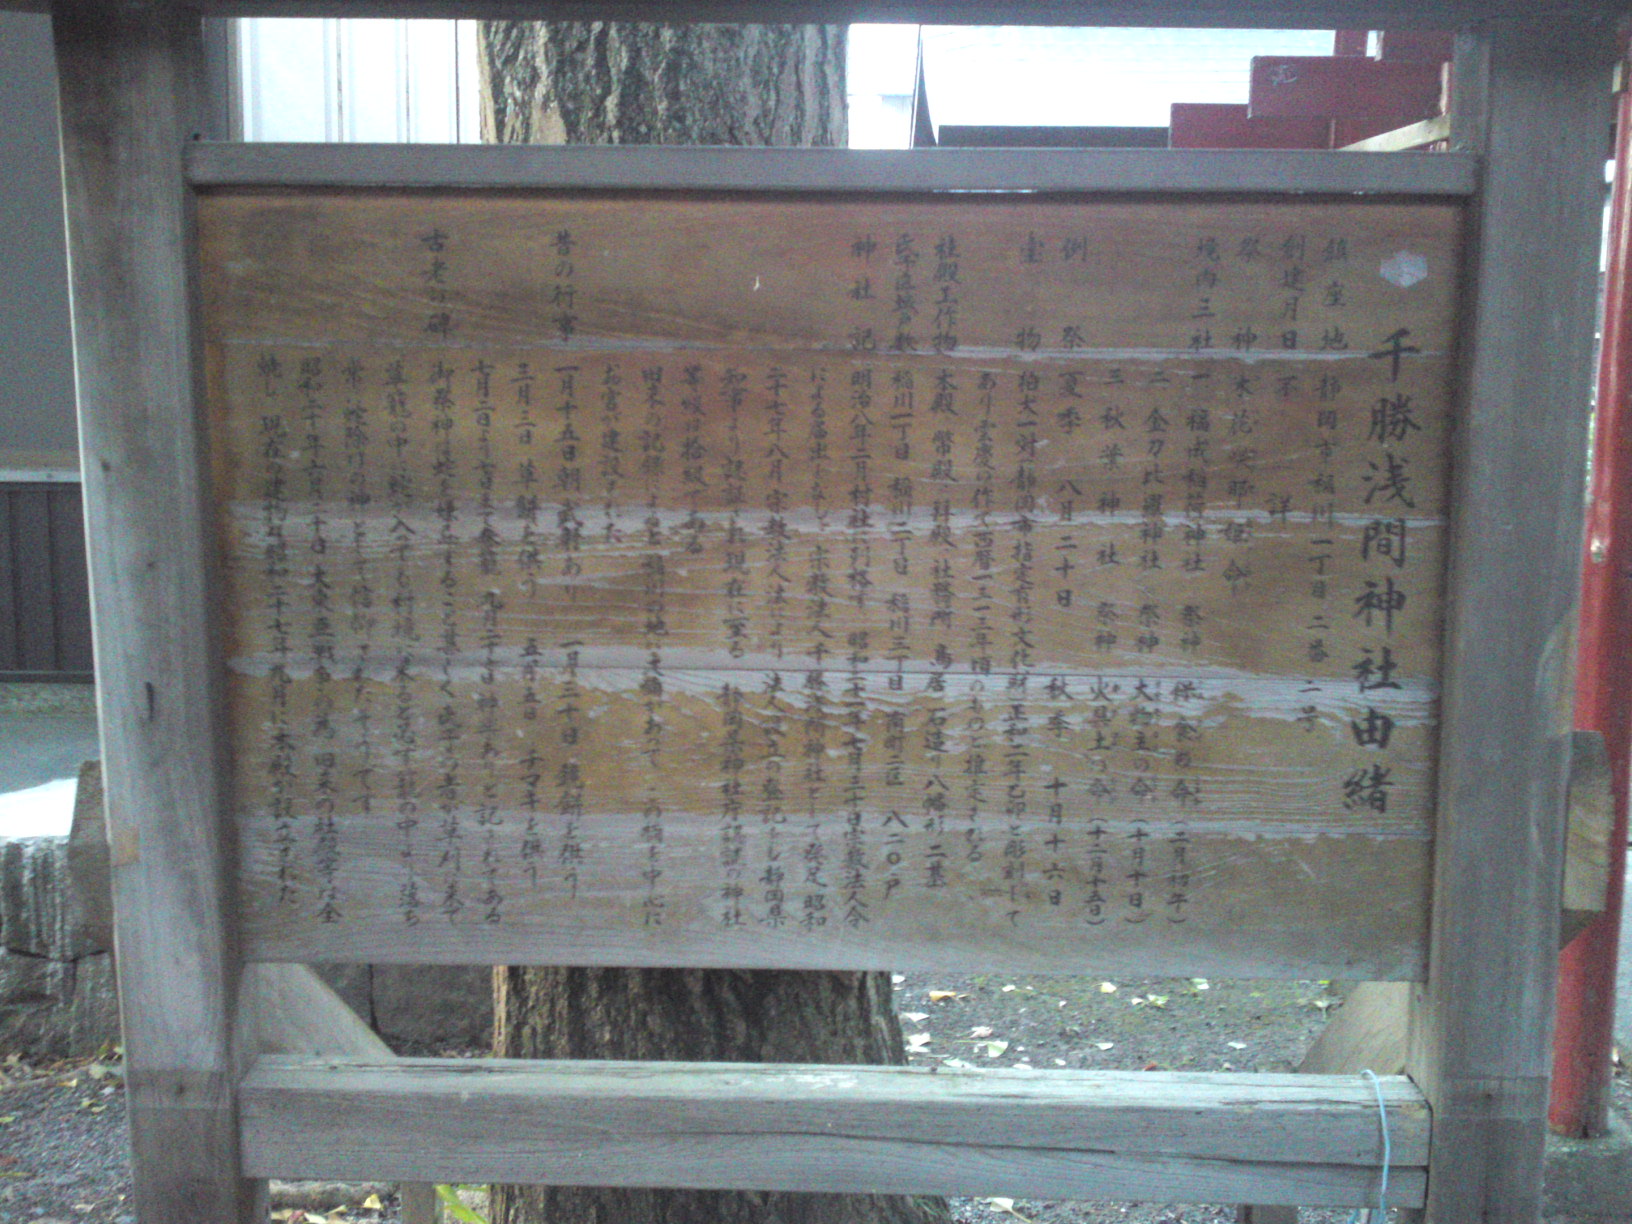 千勝浅間神社由緒
鎮座地 静岡市稲川一丁目二番二号
創建月日 不詳
祭神 木花咲耶姫命
境内三社 一 福成稲荷神社 祭神 保食の命(二月初午)
二 金刀比羅神社 祭神 大物主の命(十月十日)
三 秋葉神社 祭神 火具土の命(十二月十五日)
例祭 夏季 八月二十日 秋季 十月十六日
宝物 狛犬一対静岡市指定有形文化財 正和二年乙卯と彫刻して
あり雲慶の作で西暦一三一三年頃のものと推定される
社殿工作物 本殿 幣殿 拝殿 社務所 鳥居 石造り八幡形 二基
氏子区域戸数 稲川一丁目 稲川二丁目 稲川三丁目 南町二区 八二〇戸
神社記 明治八年二月村社に列格す 昭和二十一年七月三十日宗教法人令
による届出をなして 宗教法人千勝浅間神社として発足 昭和
二十七年八月宗教法人法により 法人設立の登記をし静岡県
知事より認証され現在に至る 静岡県神社庁認証の神社
等級は拾級である
旧来の記録によると 稲川の地に大楠があって この楠を中心に
お宮が建設された
昔の行事 一月十五日朝 武射あり 一月三十日 鏡餅を供う
三月三日 草餅を供う 五月五日 チマキを供う
七月二日より七日まで参籠 九月二十日神事ありと記されてある
古老の碑 御祭神は蛇を嫌忌すること甚しく 氏子の者が草刈に来て
草籠の中に蛇が入っても村境に来ると必ず籠の中より落ち
常に蛇除けの神として信仰されたそうです
昭和二十年六月二十日 大東亜戦争の為 旧来の社殿等は全
焼し 現在の建物は昭和二十七年九月に本殿が設立された